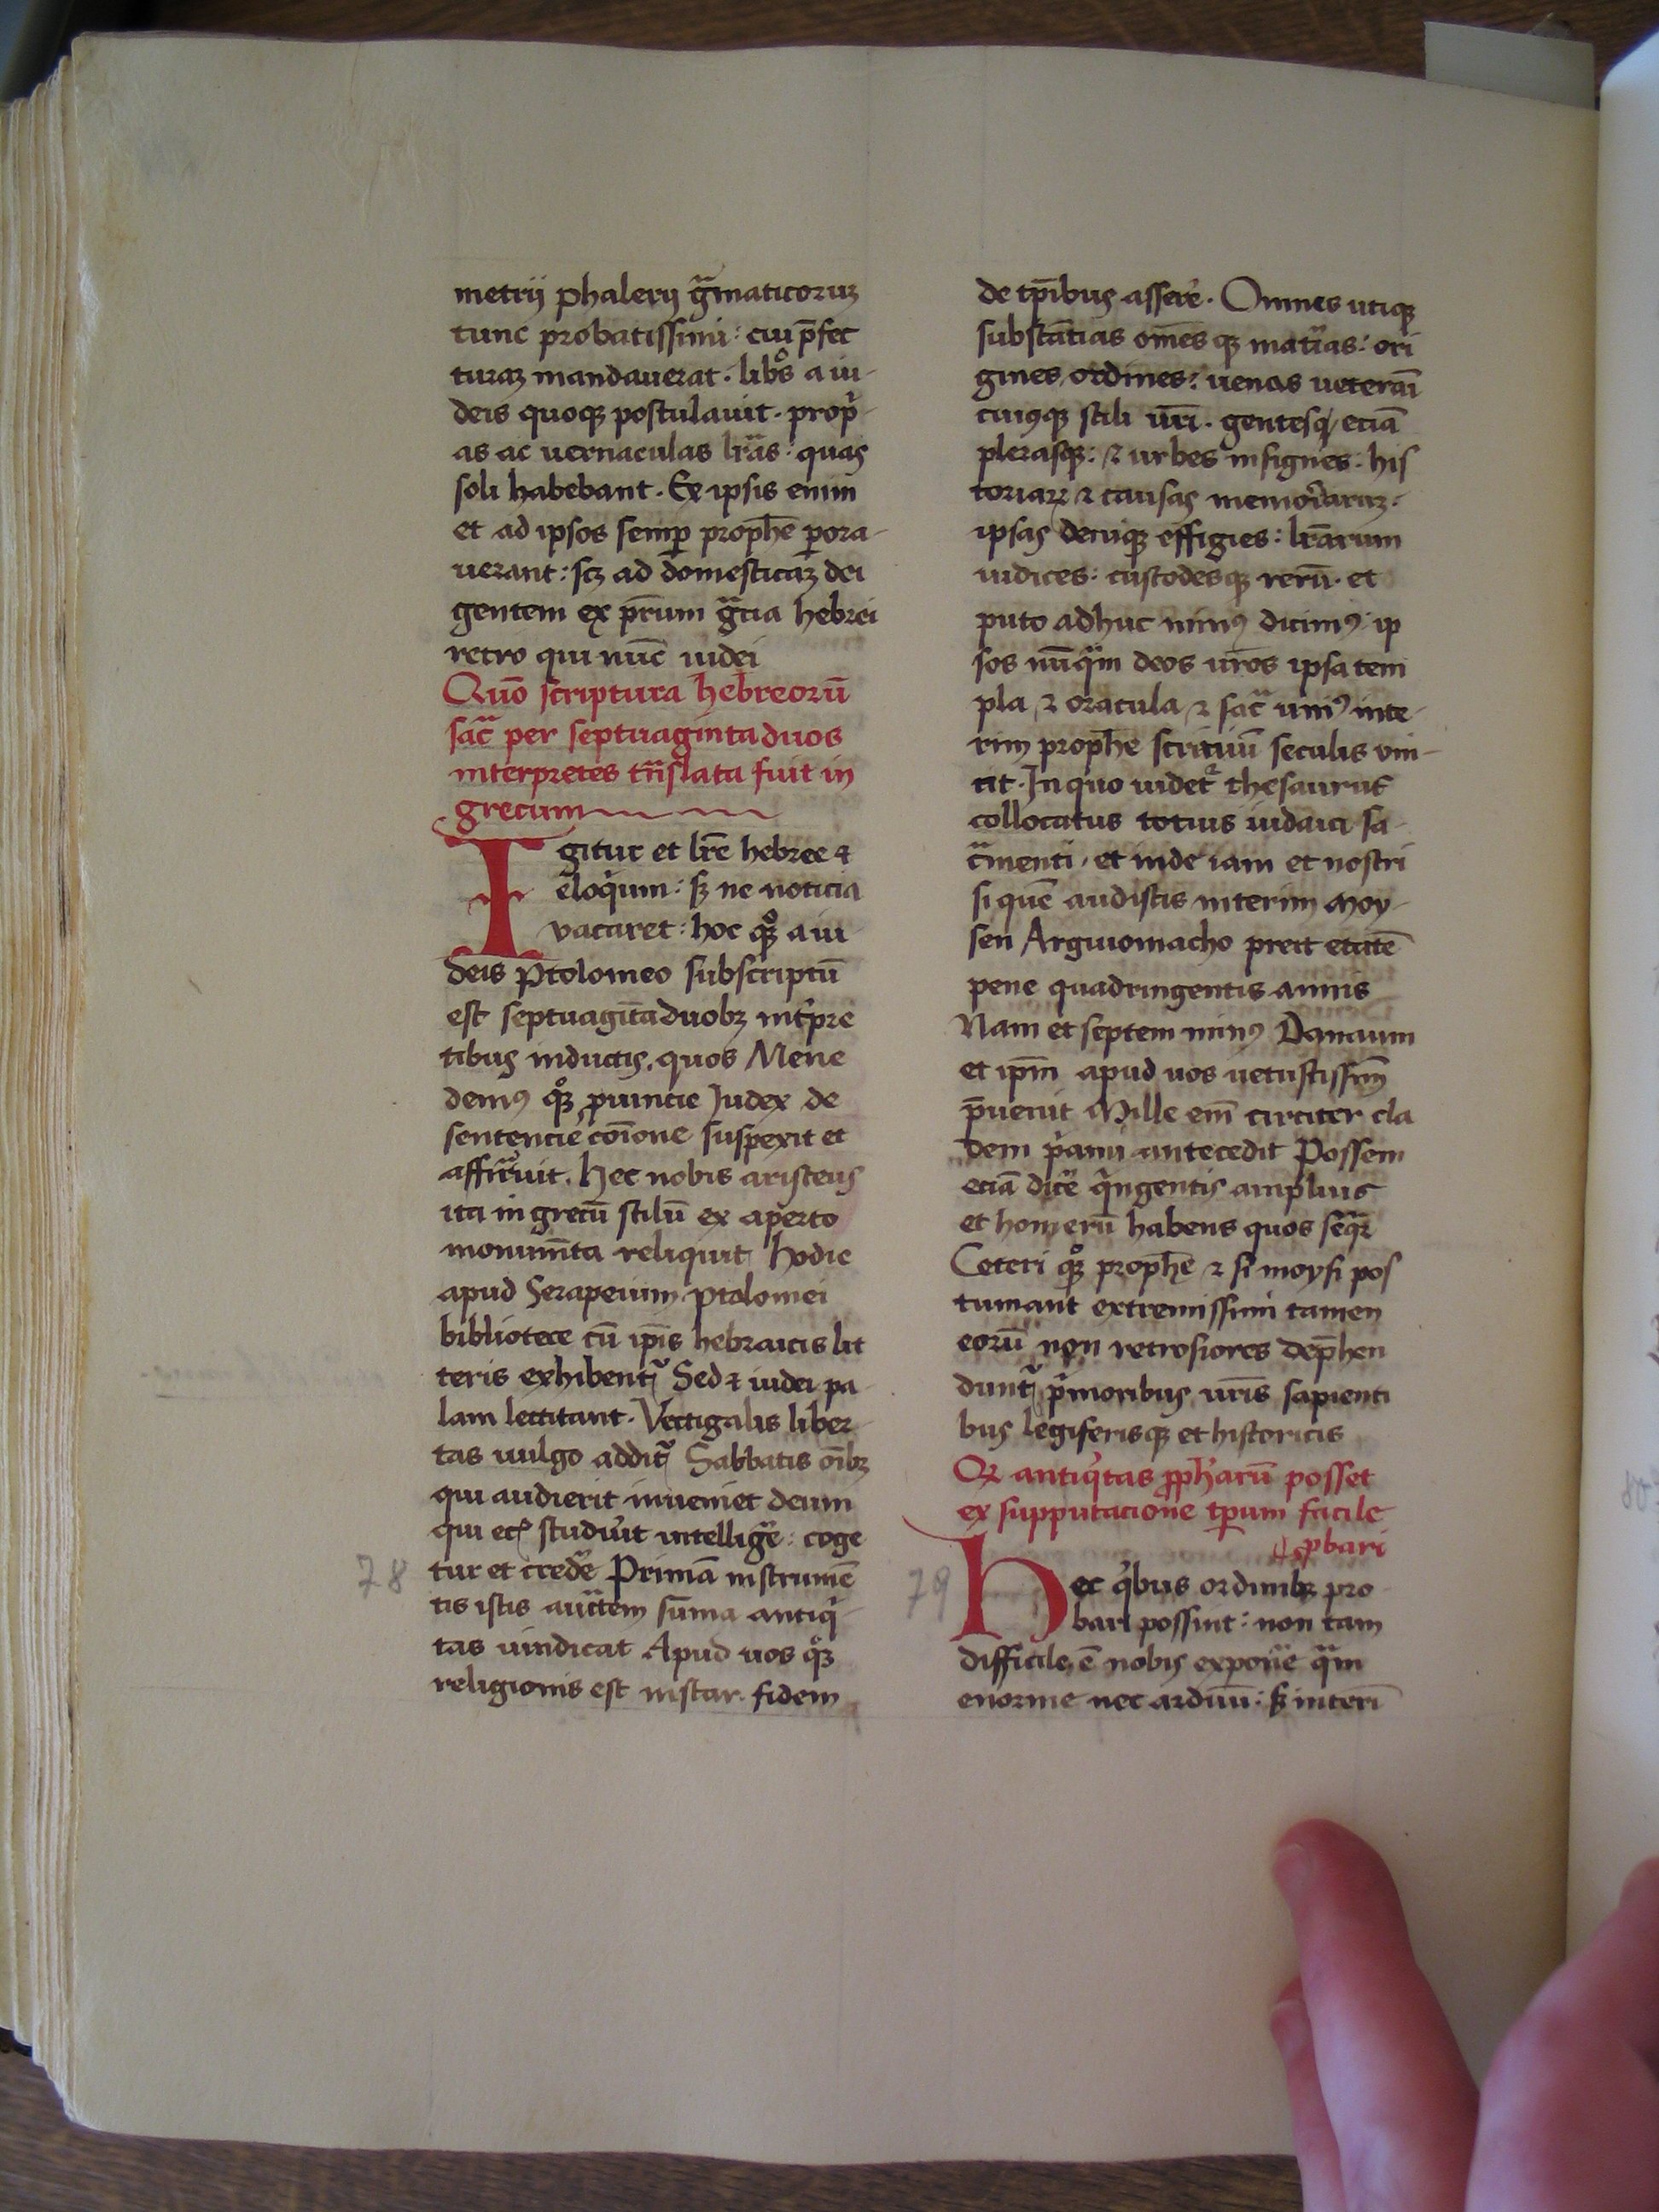 metrij phalerij g̃maticoruꝫ
tunc probatissimi : cui p̄fec
turaꝫ mandauerat . libͦs a iu-
deis quoqꝫ postulauit . prop̍-
as ac uernaculas lr̃as : quas
soli habebant . Ex ipsis enim
et ad ipsos semꝑ prophē ꝑora-
uerant : scꝫ ad domesticaꝫ dei
gentem ex pr̄um gr̃cia hebrei
retro qui nūc iudei
Quō scriptura hebreorū
sac̃ per septuaginta duos
interpretes tñslata fuit in
grecum
Igitur et lr̄e hebree ⁊
eloq̍um : sꝫ ne noticia
vacaret : hoc qͦꝫ a iu-
deis Ptolomeo subscriptū
est septuagīta duobꝫ int̍pre
tibus inductis . quos Mene
demꝰ qͦꝫ ꝓuincie Judex de
sentencie cōione suspexit et
affir̃uit . Hec nobis aristeus
ita in grecū stilū ex aperto
monumēta reliquit Hodie
apud Serapeium ptolomei
bibliotece cū ip̄is hebraicis lit
teris exhibentᷣ Sed ⁊ iudei pa
lam lectitant . Vectigalis liber-
tas uulgo additᷣ Sabbatis oībꝫ
qui audierit inueniet deum
qui ecꝰ studu̍it intellig̃e : coge
tur et cred̃e Primā instrumē
tis istis auc̃tem sūma antiq̍-
tas uindicat Apud uos qͦꝫ
religionis est instar . fidem
de tp̄ibus asser̃e . Omnes utiqꝫ
substātias om̄es qꝫ mat̃ias : ori
gines ordines : uenas ueterāi
cuiꝰqꝫ stili ur̄i . gentesqꝫ eciā
plerasqꝫ : ⁊ urbes insignes : his
toriaꝝ ⁊ causas memor̍aruꝫ .
ipsas deniqꝫ effigies : lr̄arum
iudices : custodesqꝫ rerū . et
puto adhuc minꝰ dicimꝰ ip
sos nūq̃m deos ur̄os ipsa tem
pla ⁊ oracula ⁊ sac̃ uniꝰ inte-
rim prophē scriniū seculis vin-
cit . In quo uidetᷣ thesaurus
collocatus totius iudaici sa-
c̃menti . et inde iam et nostri
si quē audistis interim moy-
sen Arguiomacho preit etatē
pene quadringentis annis
Nam et septem minꝰ Danaum
et ip̄m apud uos uetustissimū
p̄uenit Mille em̄ circiter cla
dem p̍ami antecedit Possem
eciā dic̃e q̍ngentis amplius
et homerū habens quos seq̃r
Ceteri qͦꝫ prophē ⁊ si moysi pos
tumant extremissimi tamen
eorū non retrosiores dep̄hen
duntᷣ p̍moribus ur̄is sapienti
bus legiferisqꝫ et historicis
Qꝫ antiq̍tas ꝓph̄arū posset
ex supputacione tꝑum facile
ꝓbari
Hec q̍bus ordinibꝫ pro
bari possint : non tam
difficile ē nobis expon̄e q̃m
enorme nec arduū : sꝫ interī
78
79